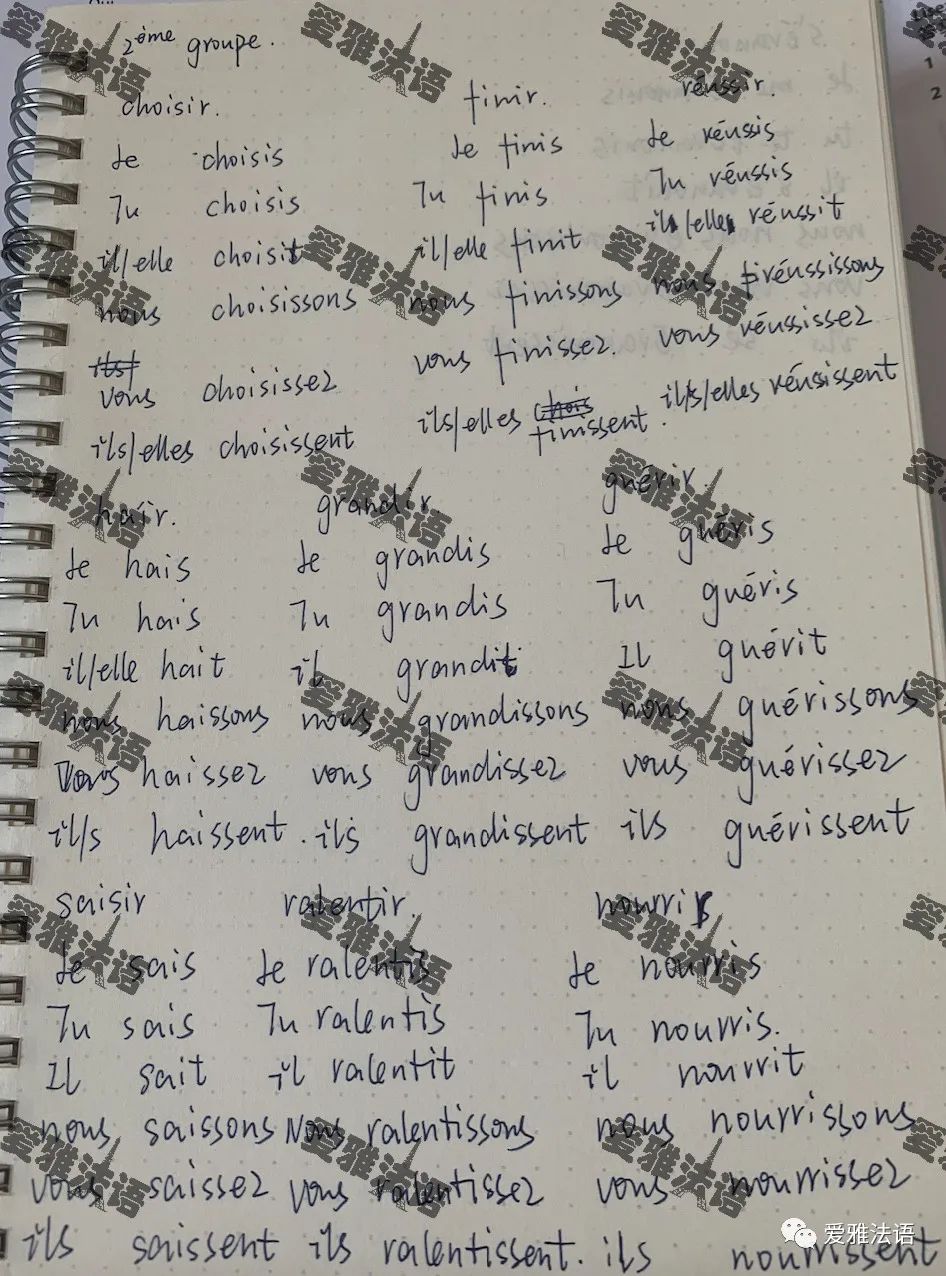 2ème groupe.
choisir. finir. réussir.
Je choisis Je finis Je réussis
Tu choisis Tu finis Tu réussis
il/elle choisit il/elle finit il/elle réussit
nous choisissons nous finissons nous réussissons
vous choisissez vous finissez. vous réussissez
ils/elles choisissent ils/elles finissent. ils/elles réussissent
haïr. grandir. guérir.
Je hais Je grandis Je guéris
Tu hais Tu grandis Tu guéris
il/elle hait il grandit Il guérit
nous haissons nous grandissons nous guérissons
vous haissez vous grandissez vous guérissez
ils haissent. ils grandissent ils guérissent
saisir ralentir. nourrir
Je sais Je ralentis Je nourris
Tu sais Tu ralentis Tu nourris.
Il sait il ralentit il nourrit
nous saissons Nous ralentissons nous nourrissons
vous saissez vous ralentissez vous nourrissez
ils saissent ils ralentissent. ils nourrissent
爱雅法语